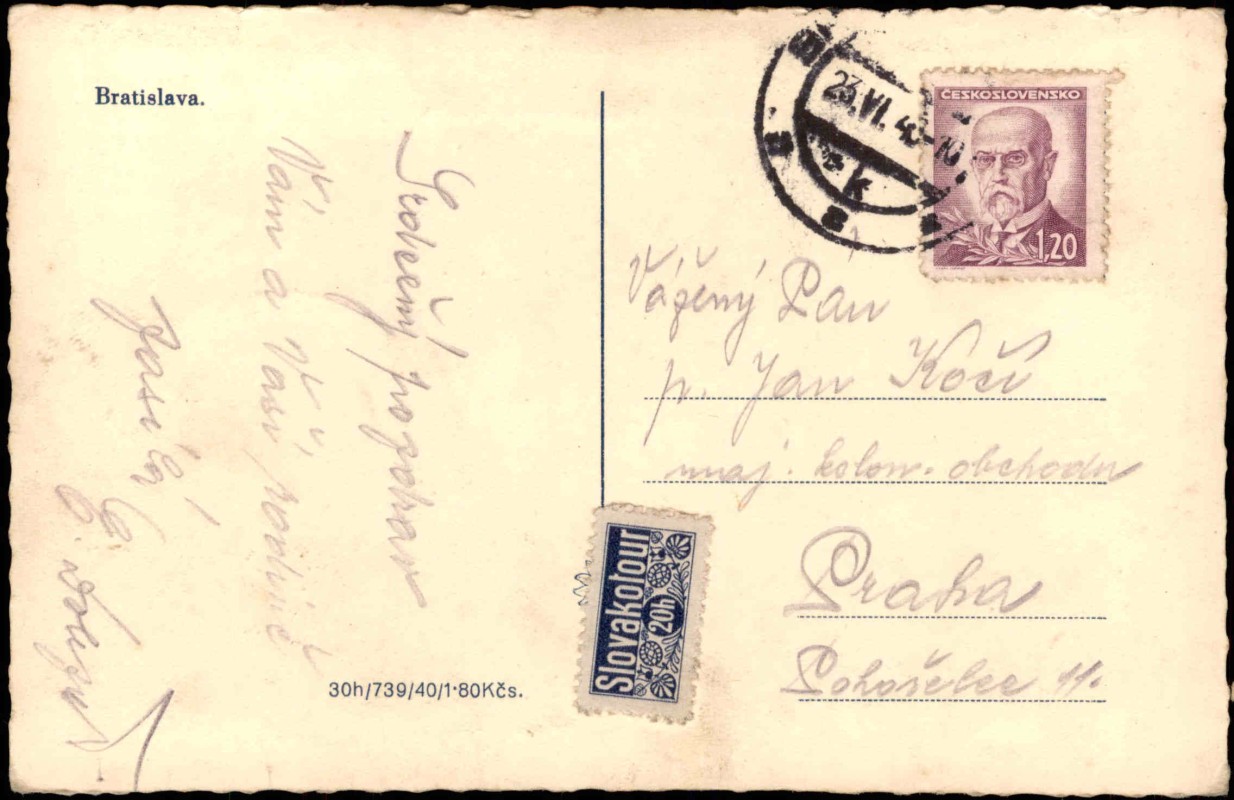 Bratislava.
Srdečný pozdrav
Vám a Vaší rodině
zasílá
30h/739/40/1·80Kčs.
Slovakotour
20h
23.VI.4
-10
k
ČESKOSLOVENSKO
1,20
Vážený Pan
p. Jan Kočí
maj. kolon. obchodu
Praha
Pohořelec 11.